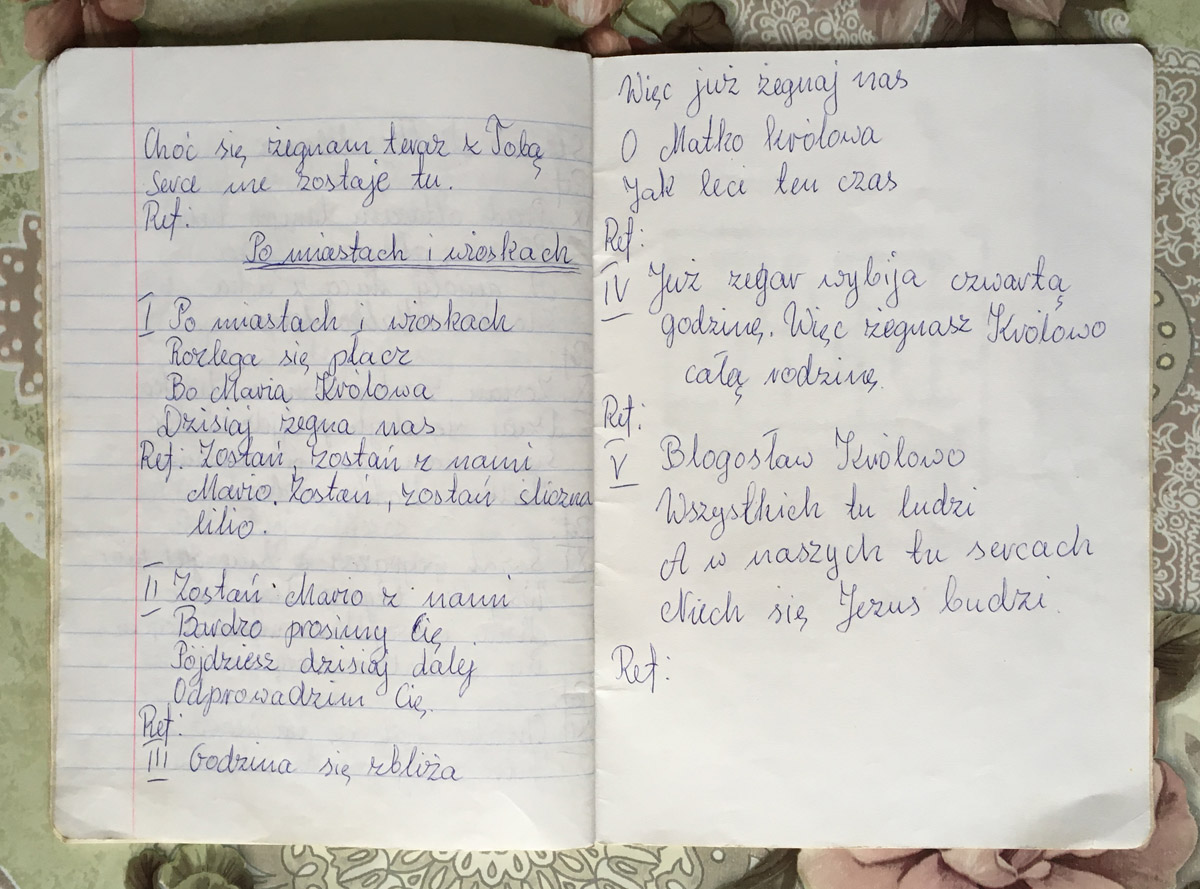 Choć się żegnam teraz z Tobą
Serce me zostaje tu.
Ref:
Po miastach i wioskach
I Po miastach i wioskach
Rozlega się płacz
Bo Maria Królowa
Dzisiaj żegna nas
Ref: Zostań, zostań z nami
Mario. Zostań, zostań śliczna
lilio.
II Zostań Mario z nami
Bardzo prosimy Cię
Pójdziesz dzisiaj dalej
Odprowadzim Cię.
Ref:
III Godzina się zbliża
Więc już żegnaj nas
O Matko Królowa
Jak leci ten czas
Ref:
IV Już zegar wybija czwartą
godzinę. Więc żegnasz Królowo
całą rodzinę.
Ref:
V Błogosław Królowo
Wszystkich tu ludzi
A w naszych tu sercach
Niech się Jezus budzi.
Ref: